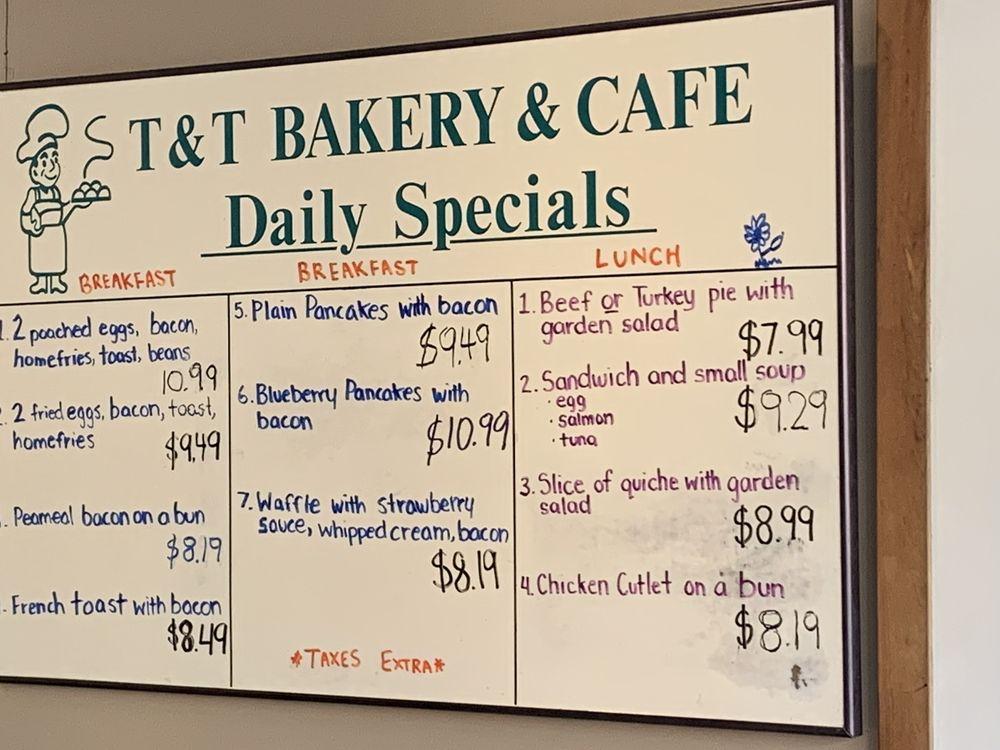 T&T BAKERY & CAFE
Daily Specials
BREAKFAST
1. 2 poached eggs, bacon,
homefries, toast, beans
10.99
2. 2 fried eggs, bacon, toast,
homefries
$9.49
. Peameal bacon on a bun
$8.19
. French toast with bacon
$8.49
BREAKFAST
5. Plain Pancakes with bacon
$9.49
6. Blueberry Pancakes with
bacon
$10.99
7. Waffle with strawberry
sauce, whipped cream, bacon
$8.19
*TAXES EXTRA*
LUNCH
1. Beef or Turkey pie with
garden salad
$7.99
2. Sandwich and small soup
· egg
· salmon
· tuna
$9.29
3. Slice of quiche with garden
salad
$8.99
4. Chicken Cutlet on a bun
$8.19